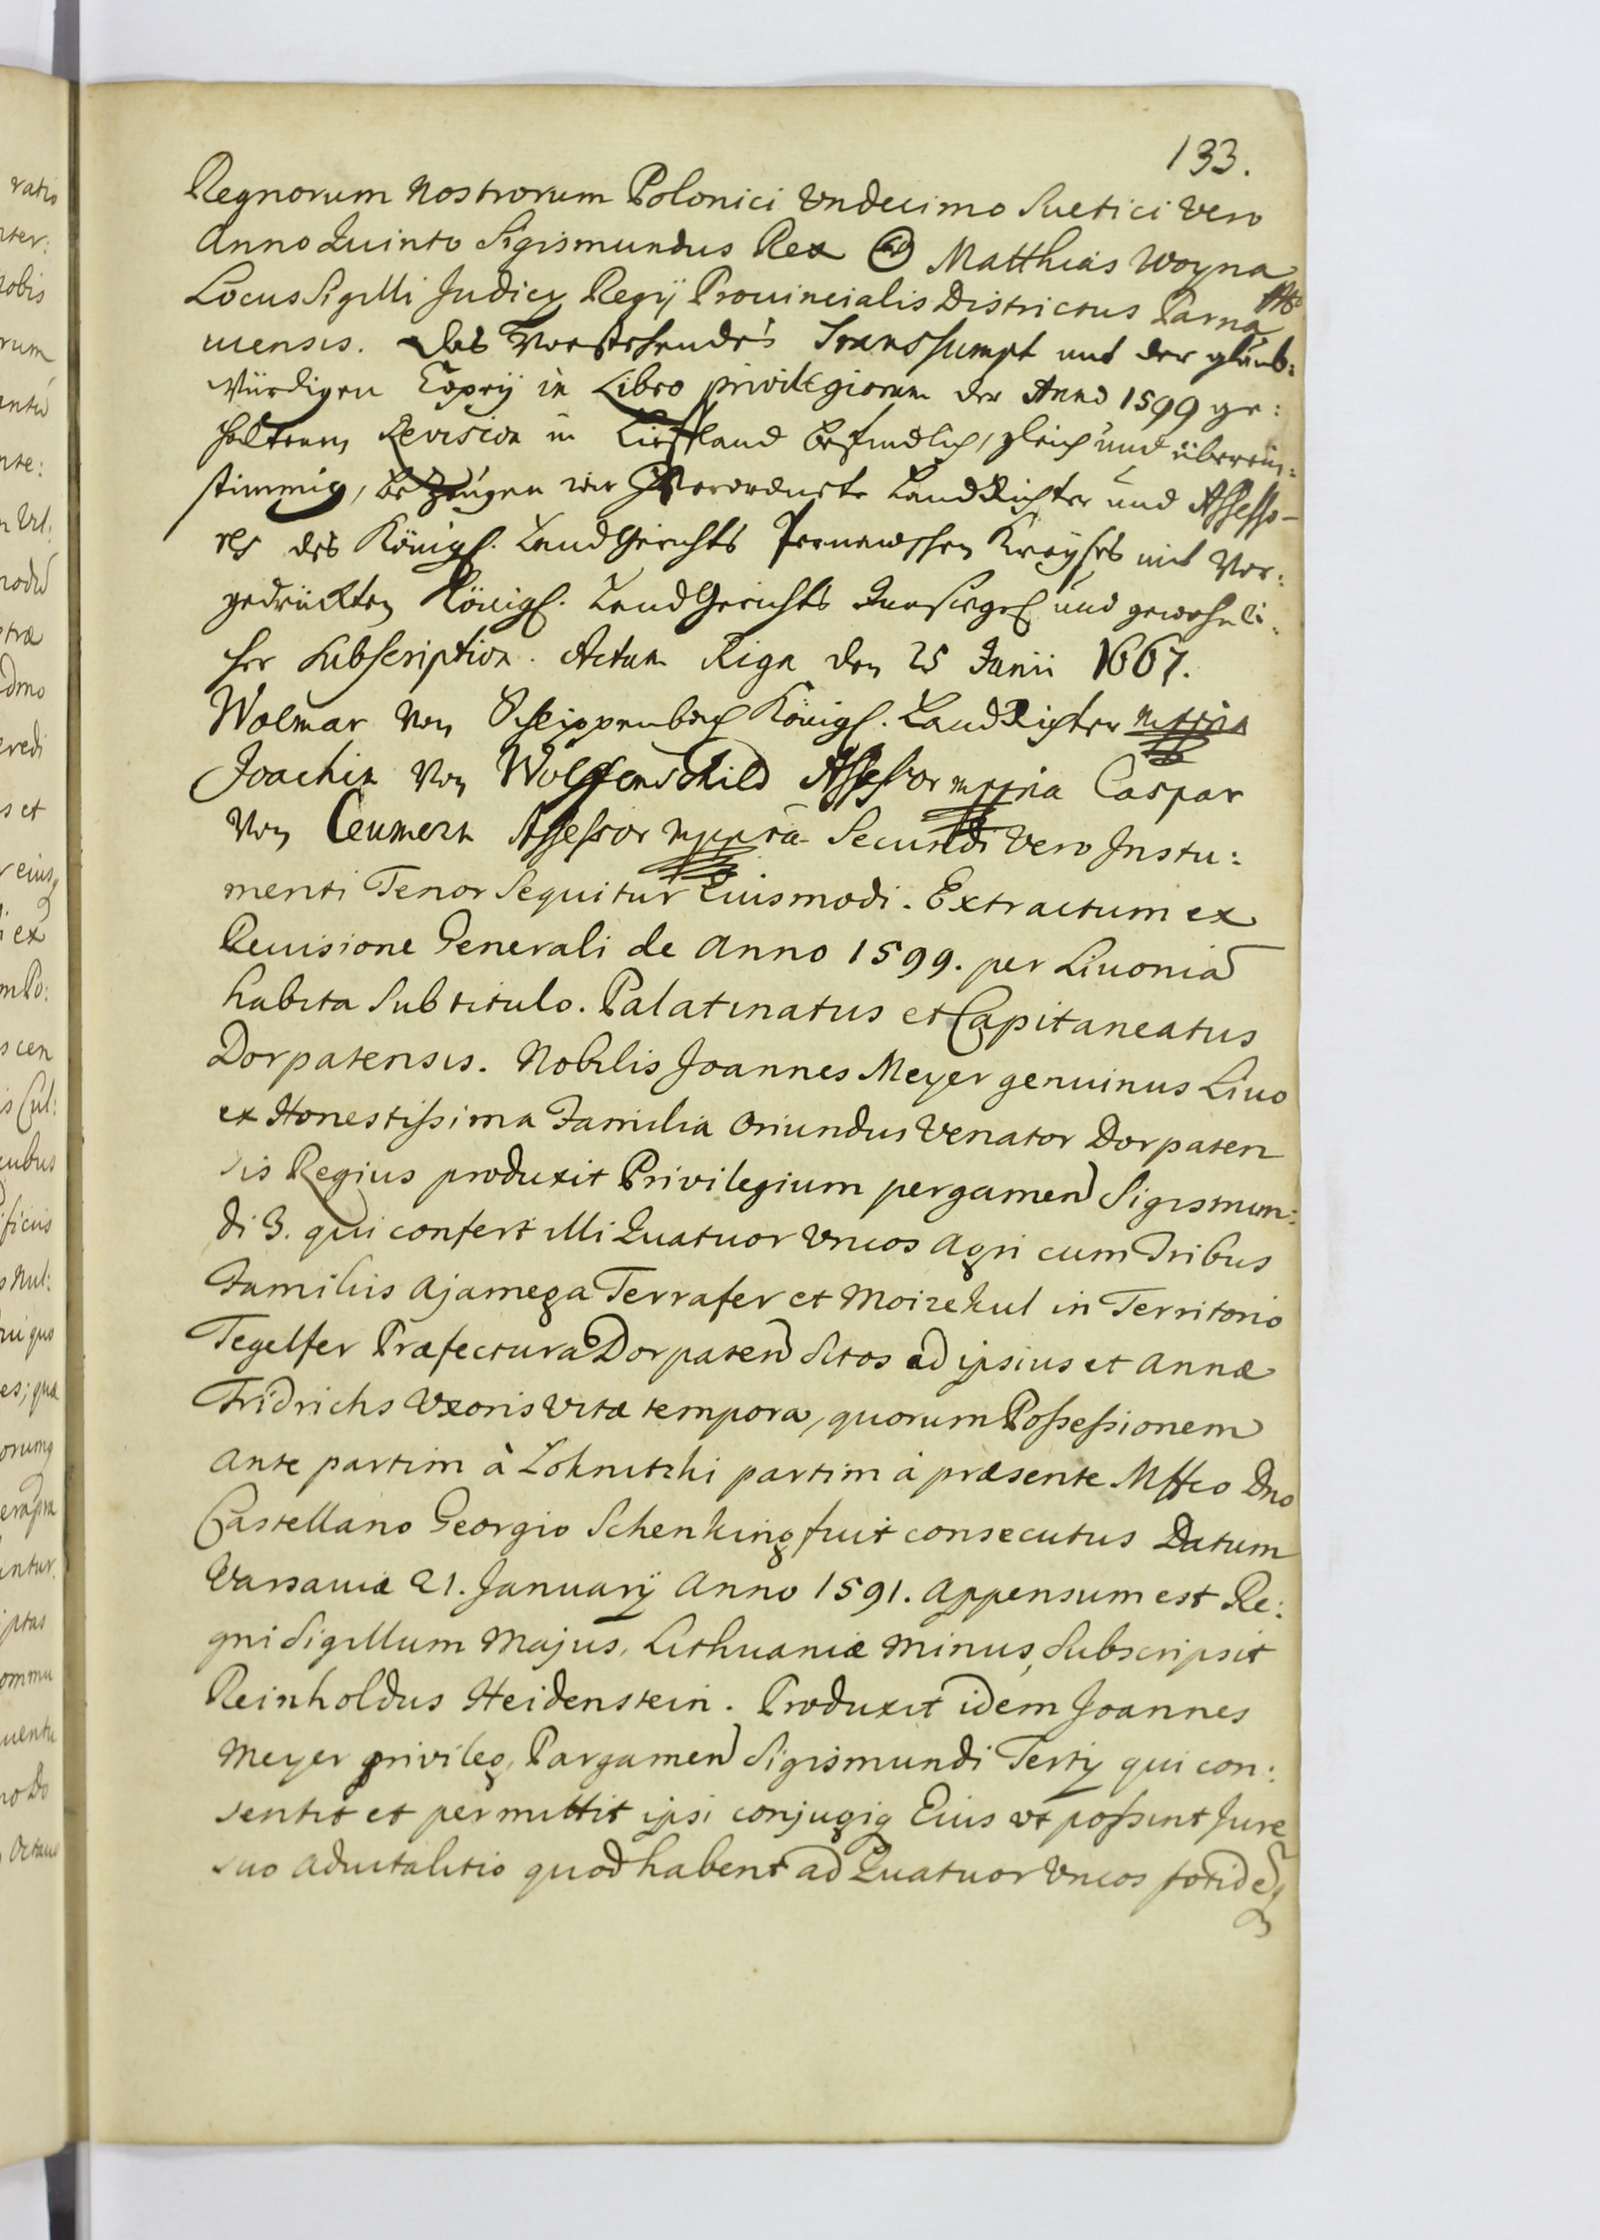 133.
Regnorum Nostrorum Polonici Undecimo Suetici Vero
Anno Quinto Sigismundus Rex Matthias Woyna
Locus Sigilli Judicy Regij Prouincialis Districtus Parna
uiensis. Das Vorstehendes Transsumpt mit der glaub:
würdigen Copeij in Libro privilegiorum der Anno 1599 ge:
haltenen Revision in Liefland befindlich, gleich und überein:
stimmig, bezeugen wir Verordnete LandRichter und Assesso-
res des Königl. LandGerichts Pernawschen Kreyses mit Vor:
gedrückten Königl. LandGerichts Insiegel und gewohnli:
cher Subscription. Actum Riga den 25 Junii 1667.
Wolmar von Schlippenbach Königl. LandRichter mppria
Joachim von Wolffenschild Assessor mppria Caspar
von Ceumern Assessor mppria Secundi Vero Instu:
menti Tenor Sequitur Eiusmodi. Extractum ex
Reuisione Generali de Anno 1599. per Liuoniã
habita Sub titulo. Palatinatus et Capitaneatus
Dorpatensis. Nobilis Joannes Meyer genuinus Liuo
ex Honestissima Familia Oriundus Venator Dorpaten
sis Regius produxit Privilegium pergamen Sigismun:
di 3. qui confert illi Quatuor Uncos Agri cum Tribus
Familiis Ajamega Terrafer et Moizekul in Territorio
Tegelfer Præfectura Dorpaten Sitos ad ipsius et Annæ
Fridrichs Uxoris Vitæ tempora, quorum Possessionem
Ante partim à partim à præsente Mffco Dno
Castellano Georgio Schenking fuit consecutus Datum
Varsauiæ 21. Januarij Anno 1591. Appensum est Re:
gni Sigillum Majus, Lithuaniæ Minus, Subscripsit
Reinholdus Heidenstein. Produxit idem Joannes
Meyer privileg, Pargamen Sigismundi Tertij qui con:
sentit et permittit ipsi conjugiq Eius ut possint Jure
suo aduitalitio quod habent ad Quatuor Uncos totideq